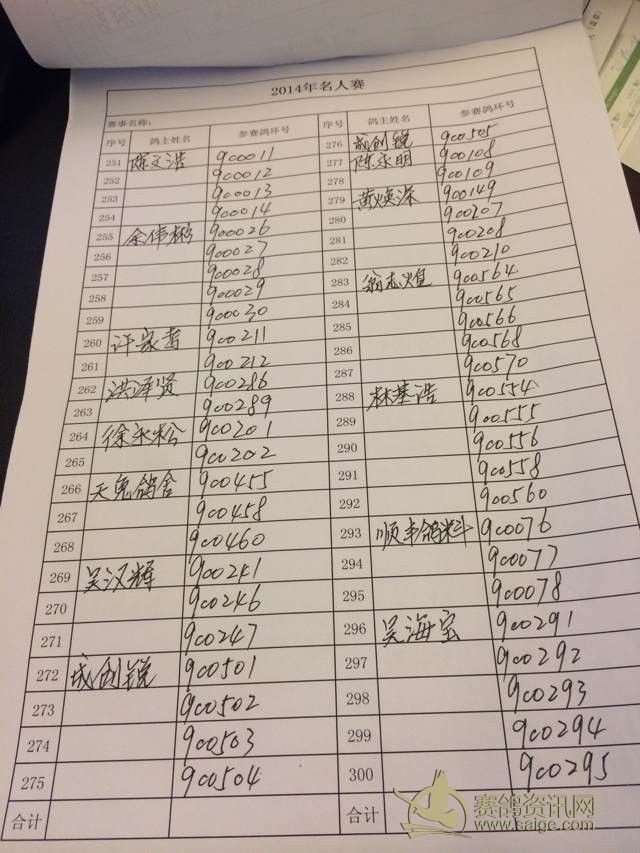 2014年名人赛
赛事名称:
序号 鸽主姓名 参赛鸽环号
251 陈文浩 900011
252 900012
253 900013
254 900014
255 余伟彬 900026
256 900027
257 900028
258 900029
259 900030
260 许家 900211
261 900212
262 洪泽贤 900286
263 900289
264 徐永松 900201
265 900202
266 天兔鸽舍 900455
267 900458
268 900460
269 吴汉辉 900241
270 900246
271 900247
272 成创锐 900501
273 900502
274 900503
275 900504
合计
序号 鸽主姓名 参赛鸽环号
276 成创锐 900505
277 陈永明 900108
278 900109
279 黄焕深 900149
280 900207
281 900208
282 900210
283 翁志煌 900564
284 900565
285 900566
286 900568
287 900570
288 林基浩 900554
289 900555
290 900556
291 900558
292 900560
293 顺丰鸽料 900076
294 900077
295 900078
296 吴海宝 900291
297 900292
298 900293
299 900294
300 900295
合计
赛鸽资讯网
www.saige.com